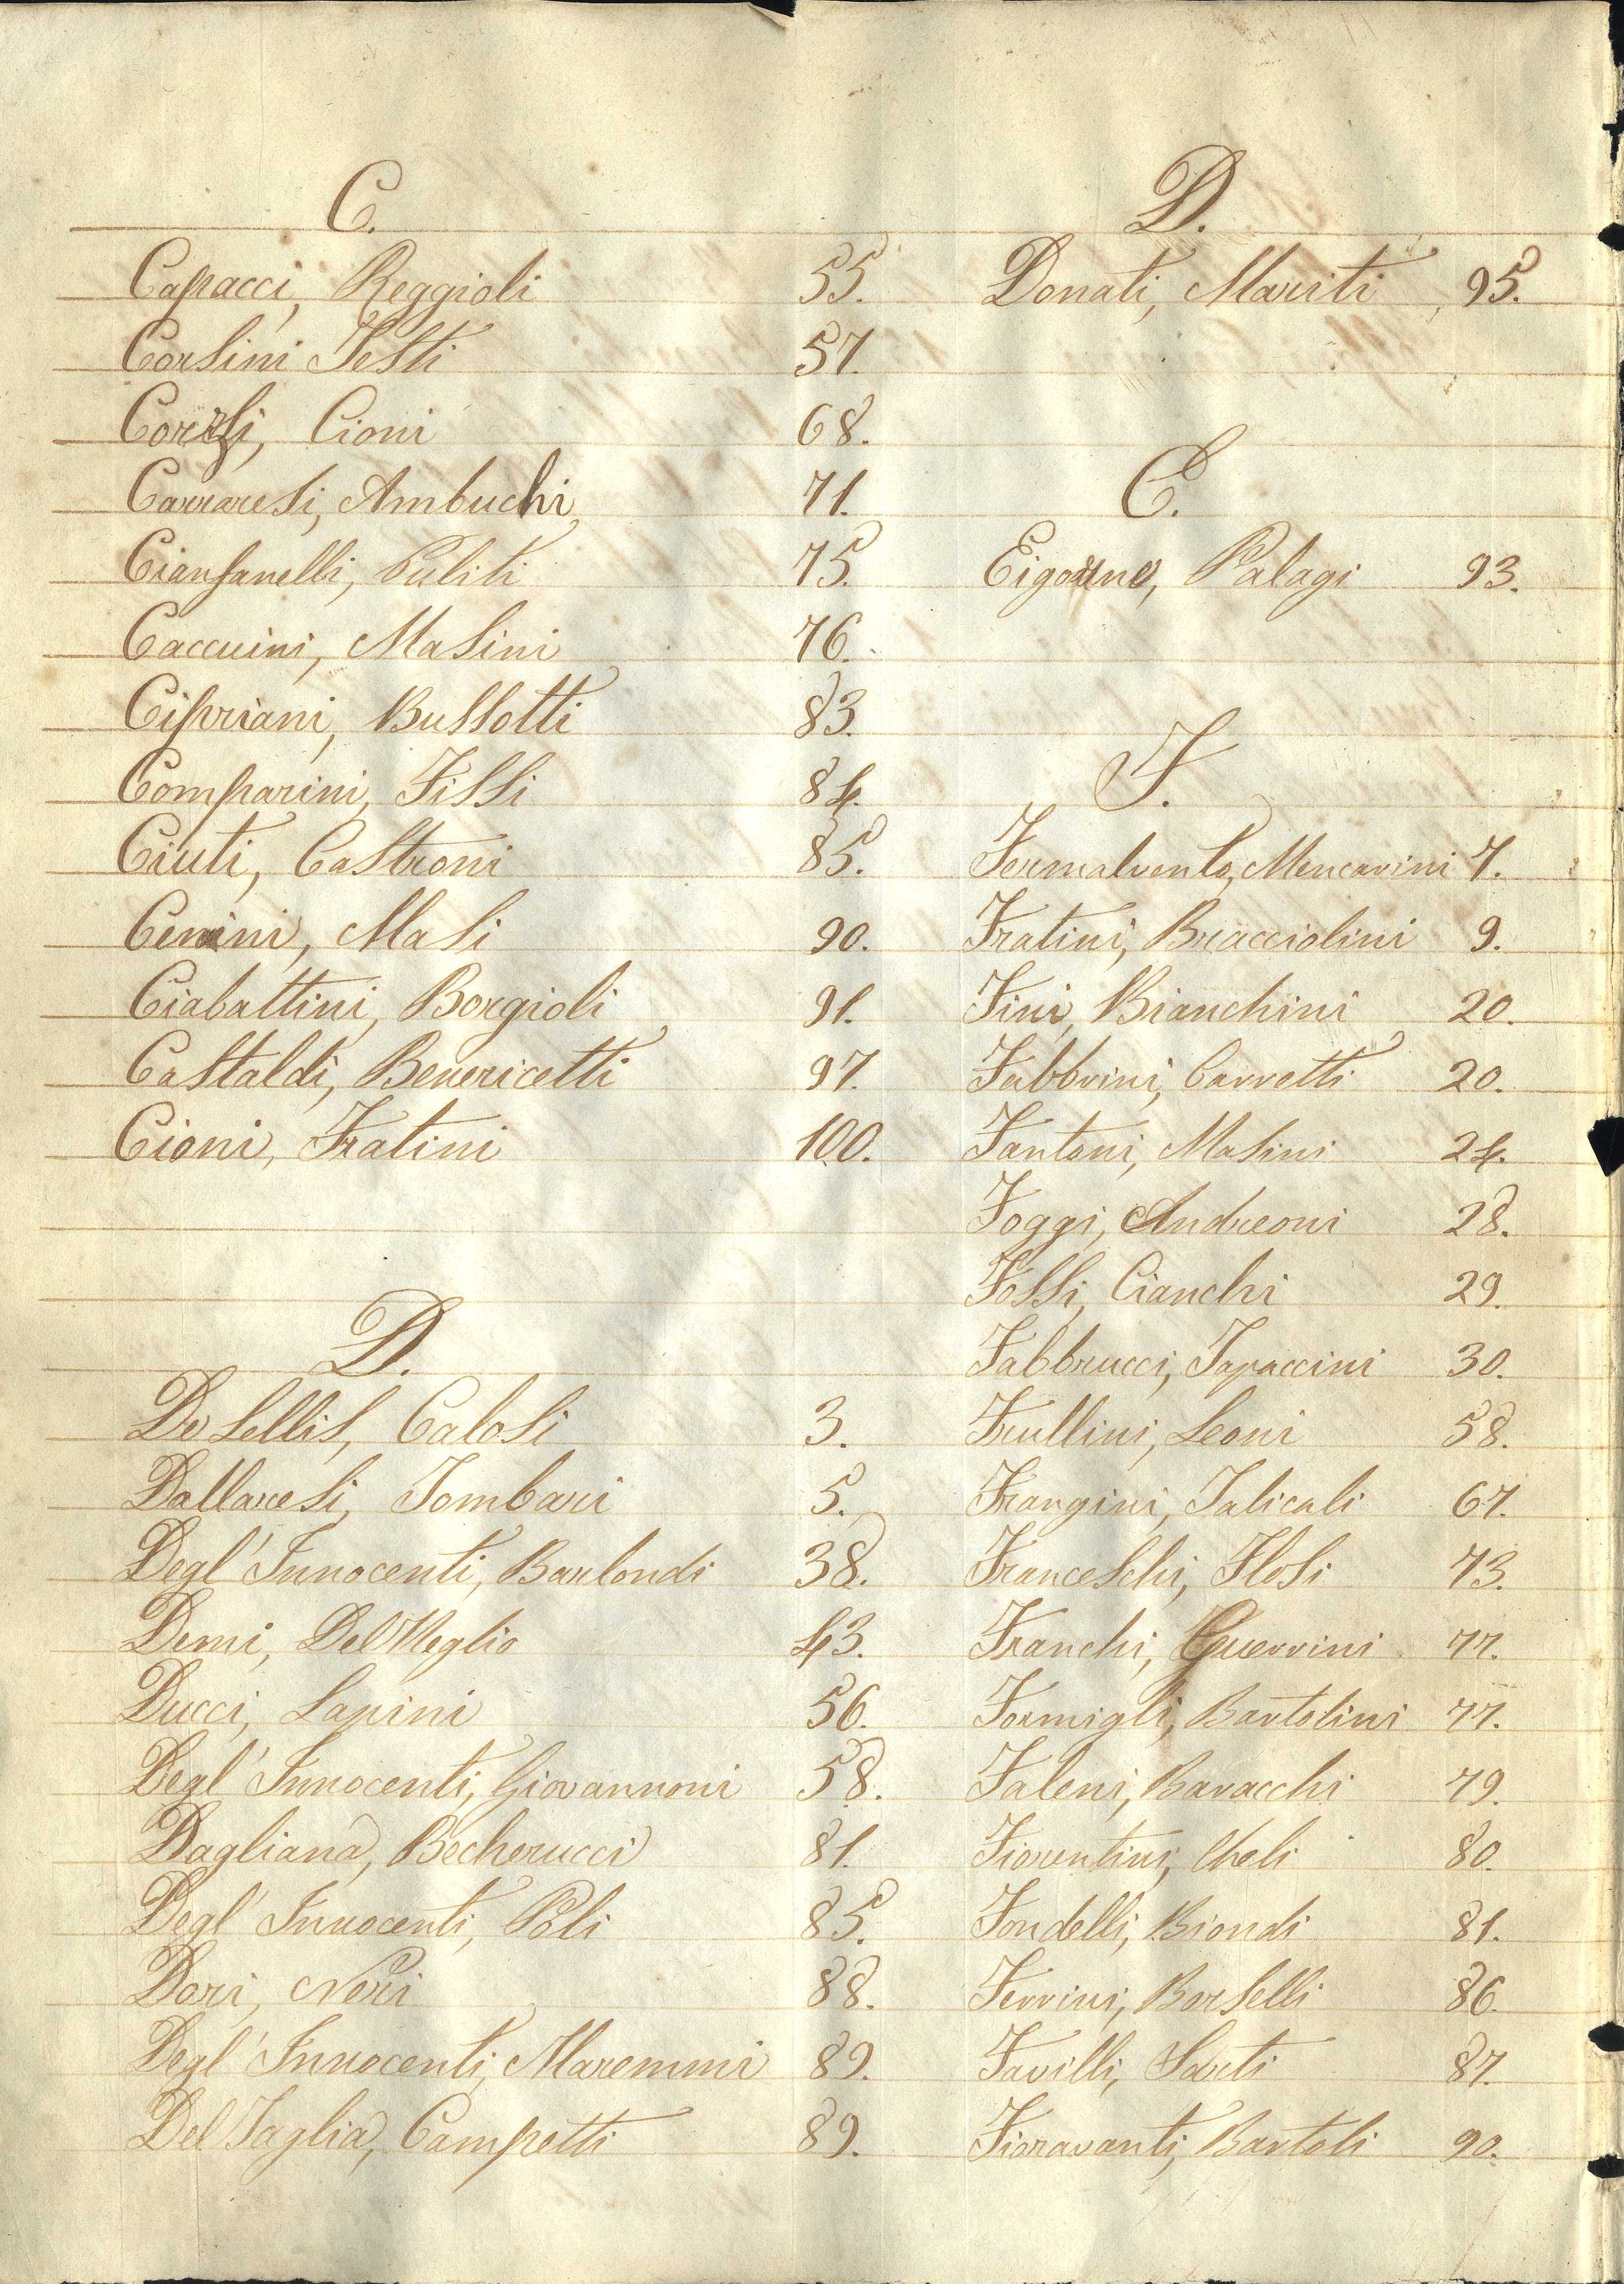 C.
Capacci, Reggioli 55.
Corsini Testi 57.
Corsi, Cioni 68.
Carraresi, Ambuchi 71.
Cianfanelli, Puliti 75.
Caccuini, Masini 76.
Cipriani, Bussotti 83.
Comparini, Fissi 84.
Ciuti, Castroni 85.
Cenini, Masi 90.
Ciabattini, Borgioli 91.
Castaldi, Benericetti 97.
Cioni, Fratini 100.
D.
De Lellis, Calosi 3.
Dallaresi, Tombari 5.
Degl' Innocenti, Barlondi 38.
Demi, Del Meglio 43.
Ducci, Lapini 56.
Degl' Innocenti, Giovannoni 58.
Dagliana, Becherucci 81.
Degl' Innocenti, Poli 85.
Dori, Neri 88.
Degl' Innocenti, Maremmi 89.
Del Taglia, Campetti 89.
D.
Donati, Mariti 95.
E.
Palagi 93.
F.
Fermalvento, Mencarini 7.
Fratini, Bracciolini 9.
Fini, Bianchini 20.
Fabbrini, Carretti 20.
Fantoni, Masini 24.
Foggi, Andreoni 28.
Fossi, Cianchi 29.
Fabbrucci, Tapaccini 30.
Frullini, Leoni 58.
Frangini, Talicali 67.
Franceschi, Flosi 73.
Franchi, Guerrini 77.
Formigli, Bartolini 77.
Faleni, Baracchi 79.
Fiorentini, Cheli 80.
Fondelli, Biondi 81.
Ferrini, Borselli 86.
Favilli, Sarti 87.
Fioravanti, Bartoli 90.